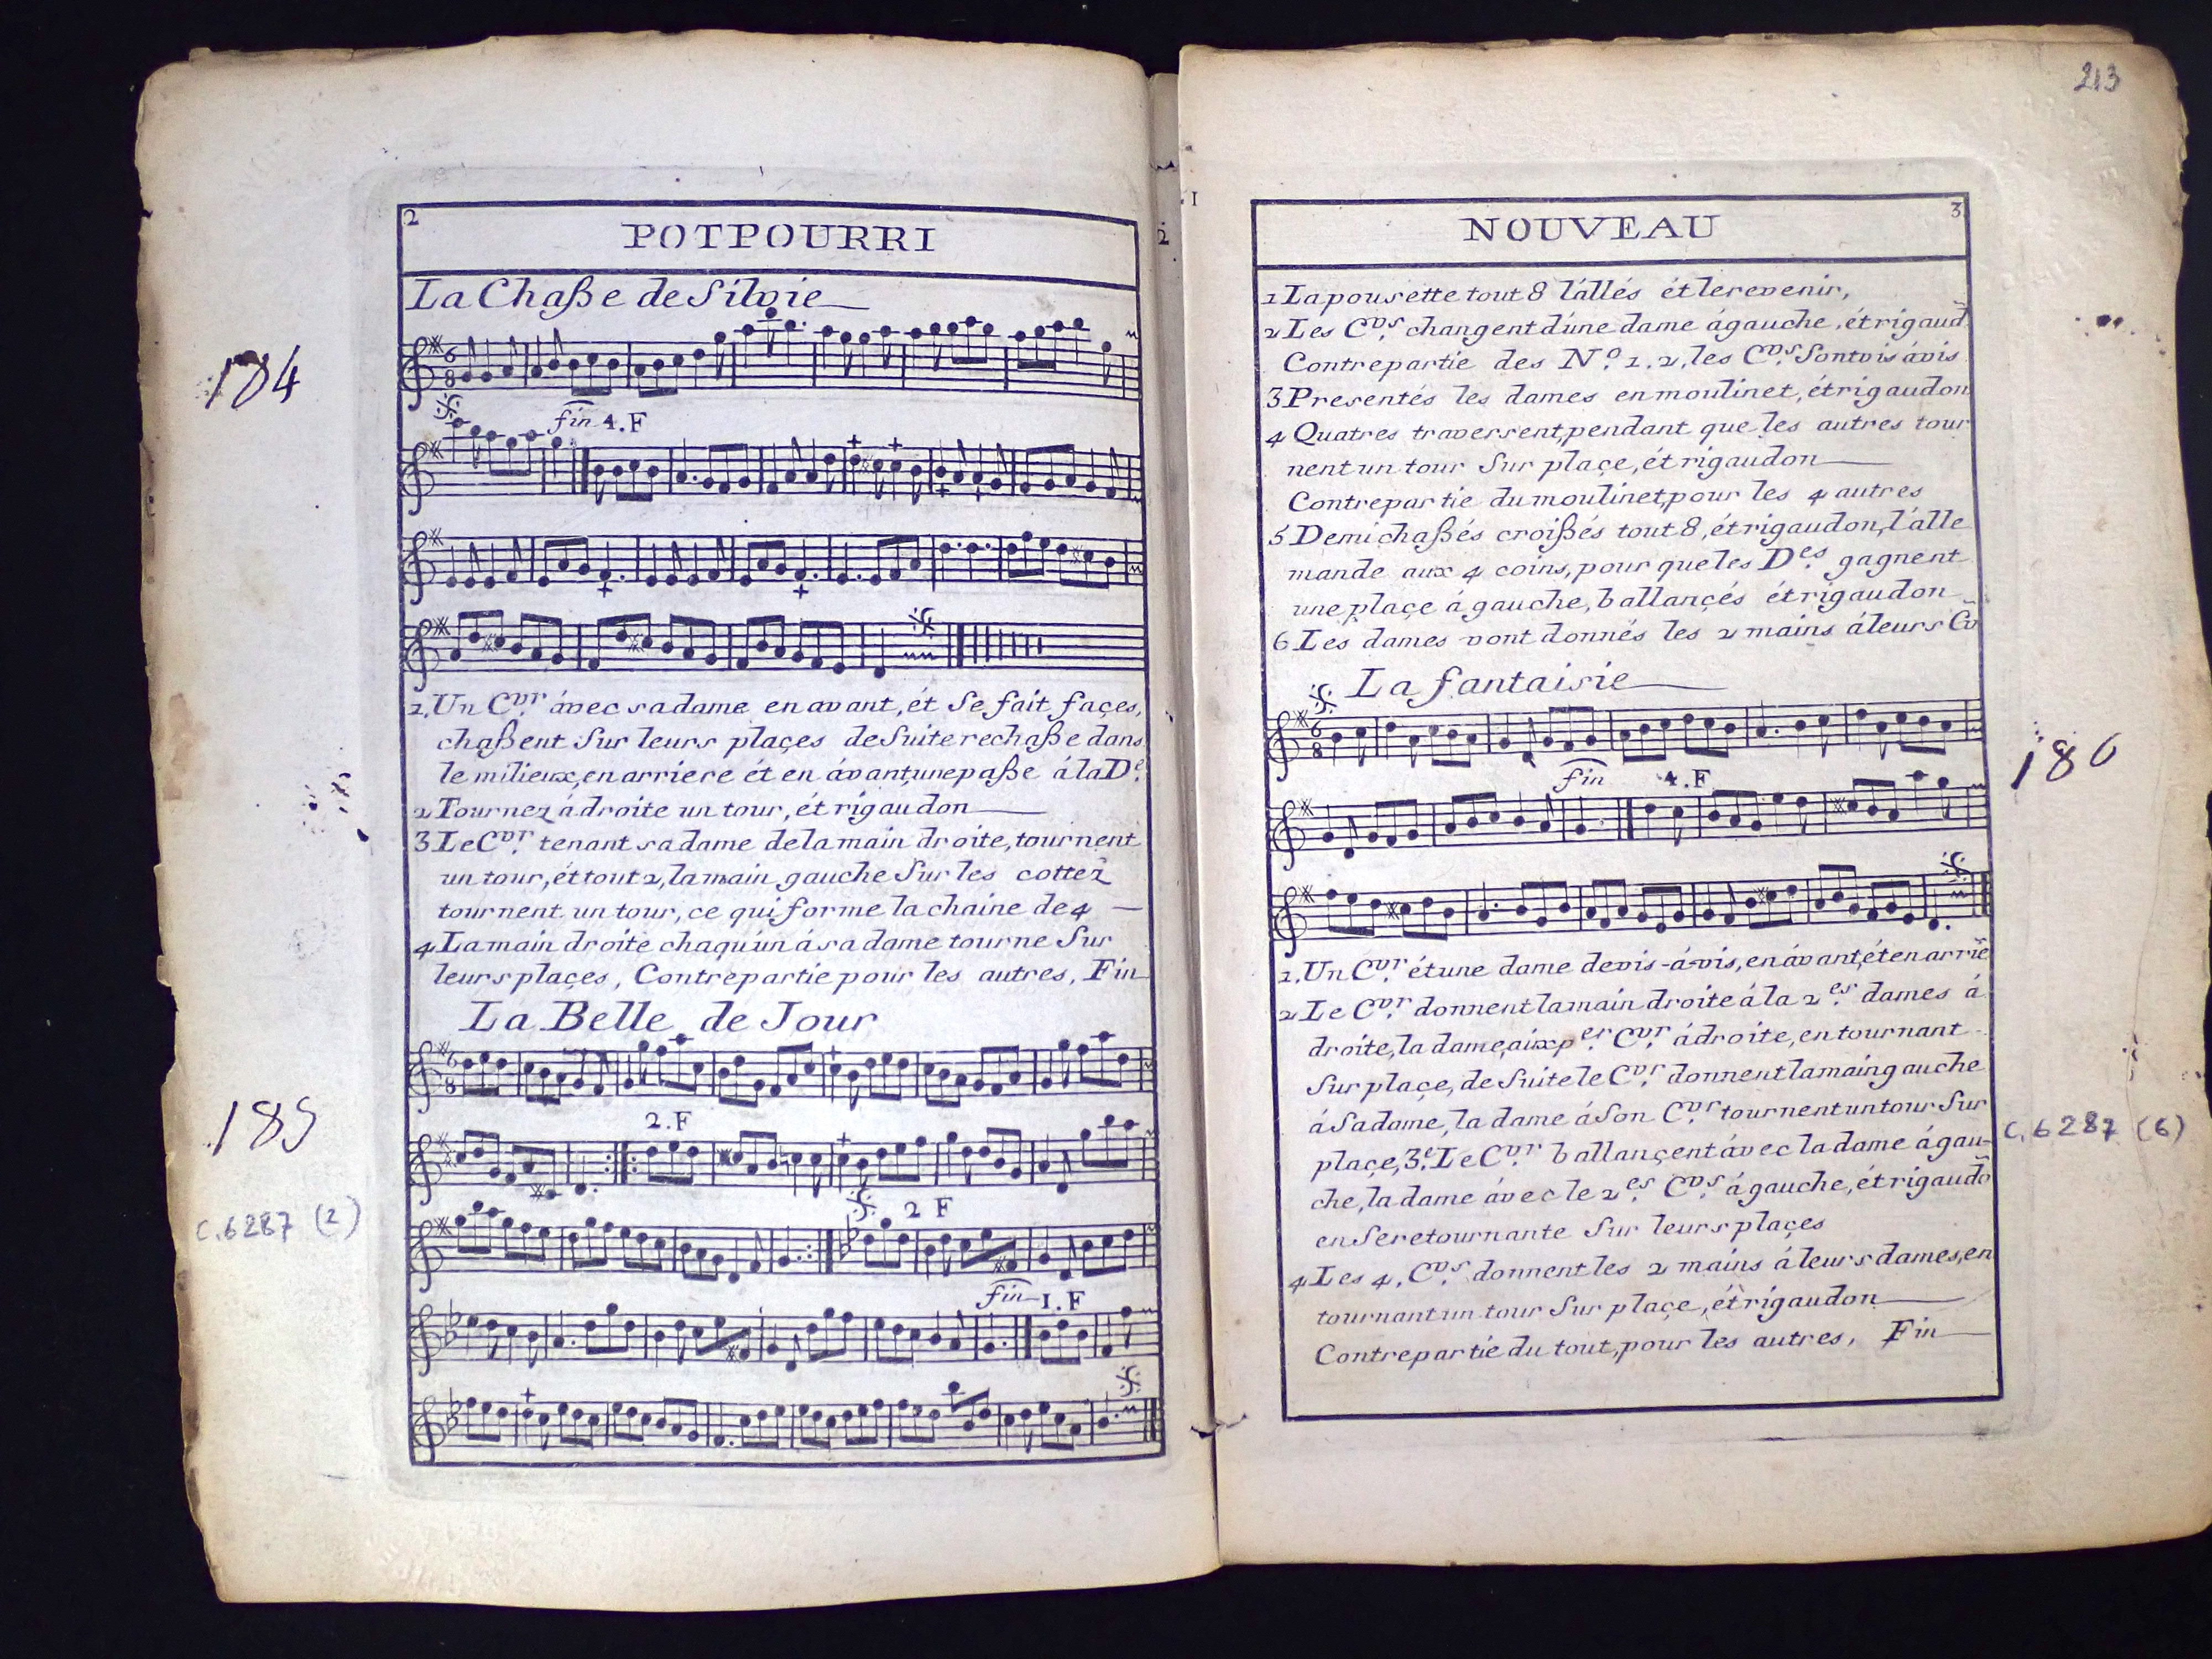 2
POTPOURRI
La Chaße de Silvie
184
fin 4.F
1,Un Cvr. ávec sa dame en avant, ét Se fait façes,
chaßent Sur leurs plaçes de Suite rechaße dans
le milieux, en arriere ét en ávant, une paße á la De.
2 Tournez á droite un tour, ét rigaudon
3 Le Cvr. tenant sa dame de la main droite, tournent
un tour, ét tout 2, la main gauche Sur les cottez
tournent un tour, ce qui forme la chaine de 4
4 La main droite chaqu'un á sa dame tourne Sur
leurs plaçes, Contrepartie pour les autres, Fin
La Belle de Jour
185
2.F
C.6287 (2)
2 F
fin 1.F
213
NOUVEAU
3
1 La pousette tout 8 l'allés ét le revenir,
2 Les Cvrs. changent d'une dame á gauche, ét rigaud
Contrepartie des No. 1. 2, les Cvrs. Sont vis ávis
3 Presentés les dames en moulinet, ét rigaudon
4 Quatres traversent, pendant que les autres tour
nent un tour Sur plaçe, ét rigaudon
Contrepartie du moulinet, pour les 4 autres
5 Demi chaßés croißés tout 8, ét rigaudon, l'alle
mande aux 4 coins, pour que les Des. gagnent
une plaçe á gauche, ballançés ét rigaudon
6 Les dames vont donnés les 2 mains á leurs Cv
La fantaisie
186
fin 4.F
1,Un Cvr. ét une dame de vis-á-vis, en ávant, ét en arrie
2 Le Cvr. donnent la main droite á la 2es. dames á
droite, la dame, aix per Cvr. á droite, en tournant
Sur plaçe, de Suite le Cvr. donnent la main gauche
á Sa dame, la dame á Son Cvr. tournent un tour Sur
plaçe, 3e. Le Cvr. ballançent ávec la dame á gau-
che, la dame ávec le 2es. Cvs. á gauche, ét rigaudo
en Se retournante Sur leurs plaçes
4 Les 4, Cvs. donnent les 2 mains á leurs dames, en
tournant un tour Sur plaçe, ét rigaudon
Contrepartie du tout, pour les autres, Fin
C.6287 (6)